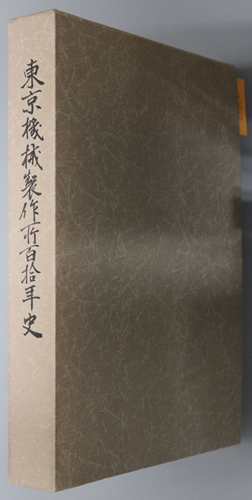 東京機械製作所百拾年史